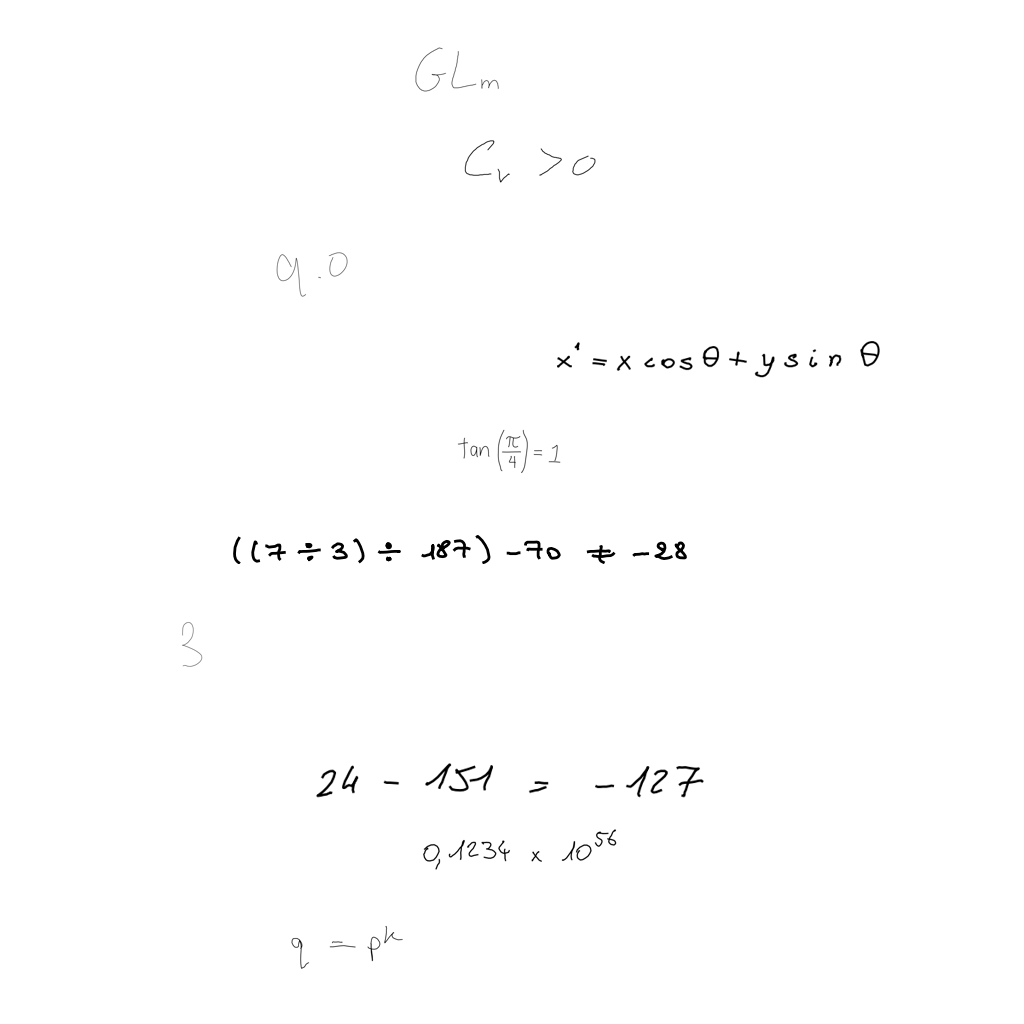 GLₘ
Cᵥ > 0
9.0
x' = x cos θ + y sin θ
tan(π/4) = 1
((7 ÷ 3) ÷ 187) - 70 ≠ -28
3
24 - 151 = -127
0,1234 × 10⁵⁶
q = pᵏ